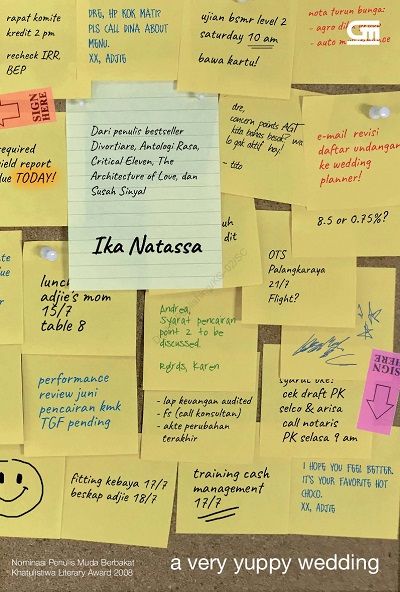 rapat komite
kredit 2 pm
recheck IRR,
BEP
DRE, HP KOK MATI?
PLS CALL DINA ABOUT
MENU.
XX, ADJIE
ujian bsmr level 2
saturday 10 am
bawa kartu!
nota turun bunga:
- agro
- auto
GM
SIGN
HERE
required
ield report
due TODAY!
Dari penulis bestseller
Divortiare, Antologi Rasa,
Critical Eleven, The
Architecture of Love, dan
Susah Sinyal
Ika Natassa
dre,
concern points AGT
kita bahas besok? wa
lo gak aktif hoy!
- tito
e-mail revisi
daftar undangan
ke wedding
planner!
8.5 or 0.75%?
uh
dit
OTS
Palangkaraya
21/7
Flight?
lunch
adjie's mom
15/7
table 8
Andrea,
Syarat pencairan
point 2 to be
discussed.
Rgrds, Karen
SIGN
HERE
performance
review juni
pencairan kmk
TGF pending
- lap keuangan audited
- fs (call konsultan)
- akte perubahan
terakhir
cek draft PK
selco & arisa
call notaris
PK selasa 9 am
fitting kebaya 17/7
beskap adjie 18/7
training cash
management
17/7
I HOPE YOU FEEL BETTER.
IT'S YOUR FAVORITE HOT
CHOCO.
XX, ADJIE
Nominasi Penulis Muda Berbakat
Khatulistiwa Literary Award 2008
a very yuppy wedding